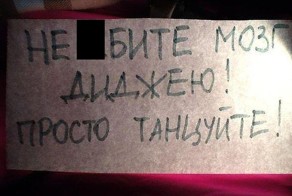 НЕ БИТЕ МОЗГ
ДИДЖЕЮ!
ПРОСТО ТАНЦУЙТЕ!